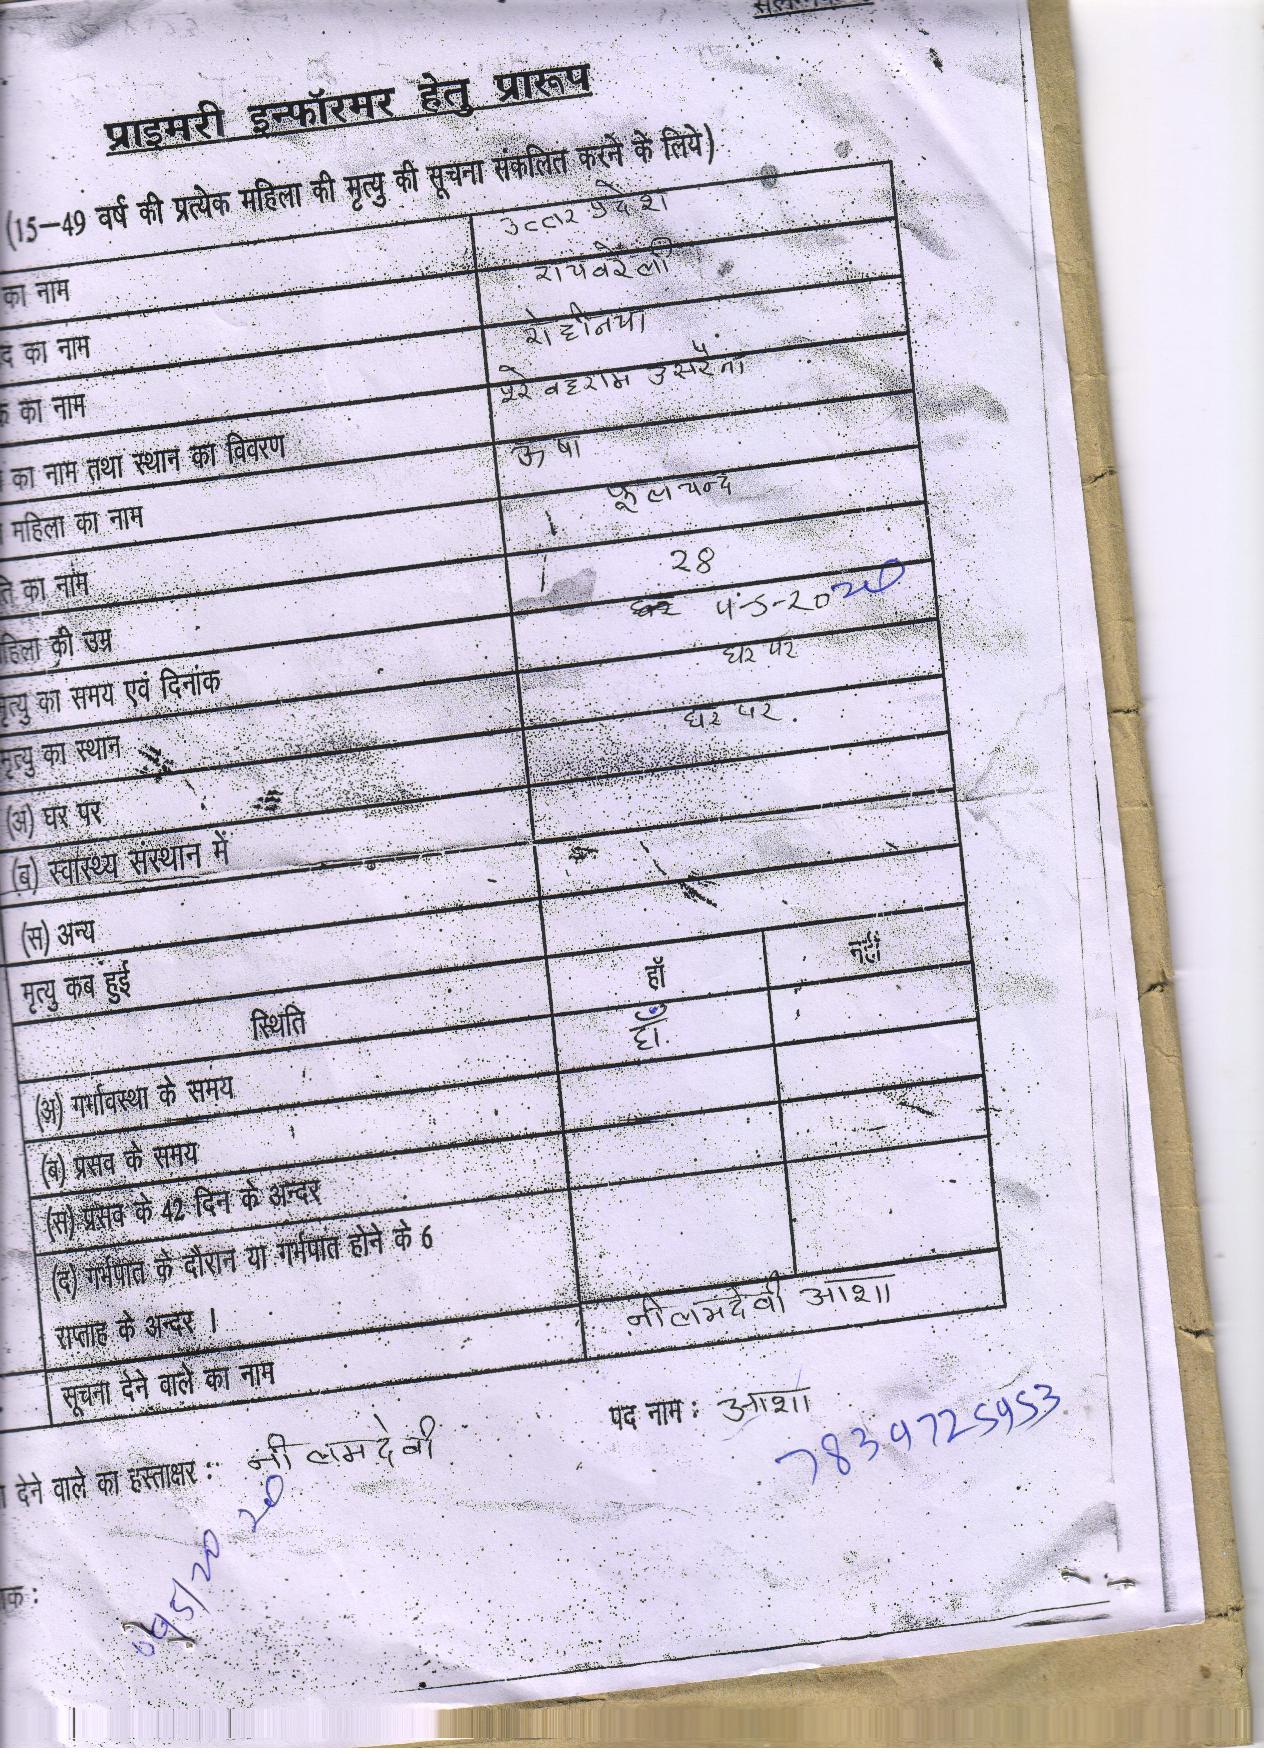 प्राइमरी इन्फॉरमर हेतु प्रारूप
(15–49 वर्ष की प्रत्येक महिला की मृत्यु की सूचना संकलित करने के लिये)
का नाम उत्तर प्रदेश
द का नाम रायवरेली
क का नाम रोहीनया
का नाम तथा स्थान का विवरण पूरे वहराम उसरैना
महिला का नाम ऊषा
ति का नाम फूलचन्द
हिला की उम्र 28
मृत्यु का समय एवं दिनांक
मृत्यु का स्थान घर पर
(अ) घर पर घर पर.
(ब) स्वास्थ्य संस्थान में
(स) अन्य
मृत्यु कब हुई
स्थिति हॉ नहीं
(अ) गर्भावस्था के समय हाँ.
(ब) प्रसव के समय
(स) प्रसव के 42 दिन के अन्दर
(द) गर्भपात के दौरान या गर्भपात होने के 6
सप्ताह के अन्दर ।
सूचना देने वाले का नाम नीलमदेवी आशा
पद नाम : आशा
7839725953
देने वाले का हस्ताक्षर : नीलमदेवी